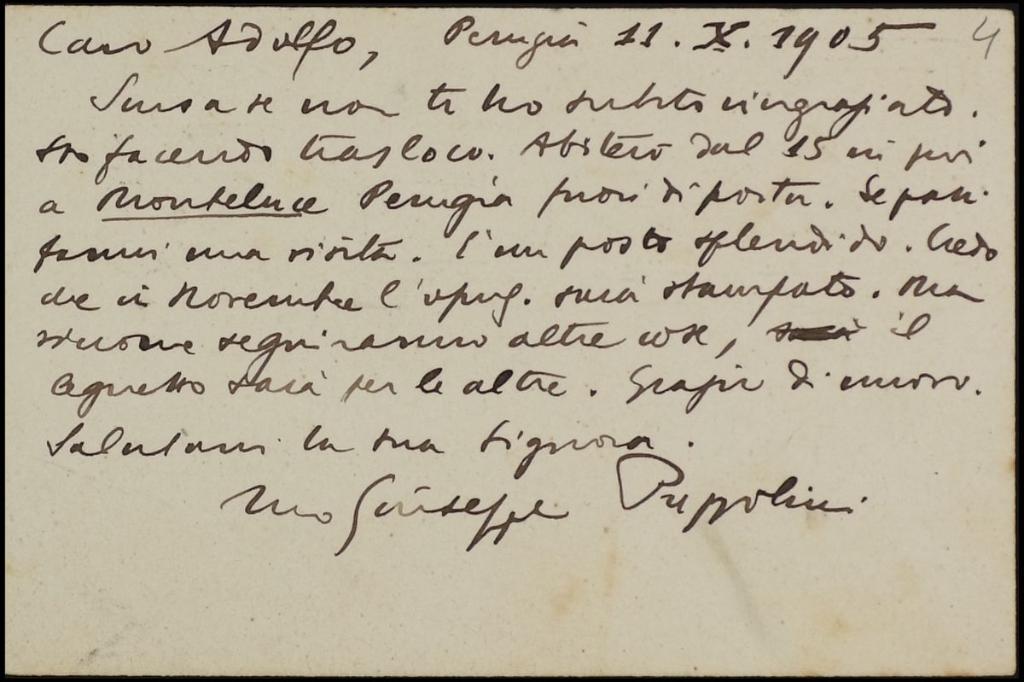 Caro Adolfo, Perugia 11. X. 1905 4
Scusa se non ti ho subito ringraziato.
Sto facendo trasloco. Abiterò dal 15 in poi
a Monteluce Perugia fuori di porta. Se passi
fammi una visita. È un posto splendido. Credo
che in Novembre l'opusc. sarà stampato. Ma
siccome seguiranno altre cose, sarà il
sarà per le altre. Grazie di nuovo.
Salutami la tua Signora.
tuo Giuseppe Prezzolini